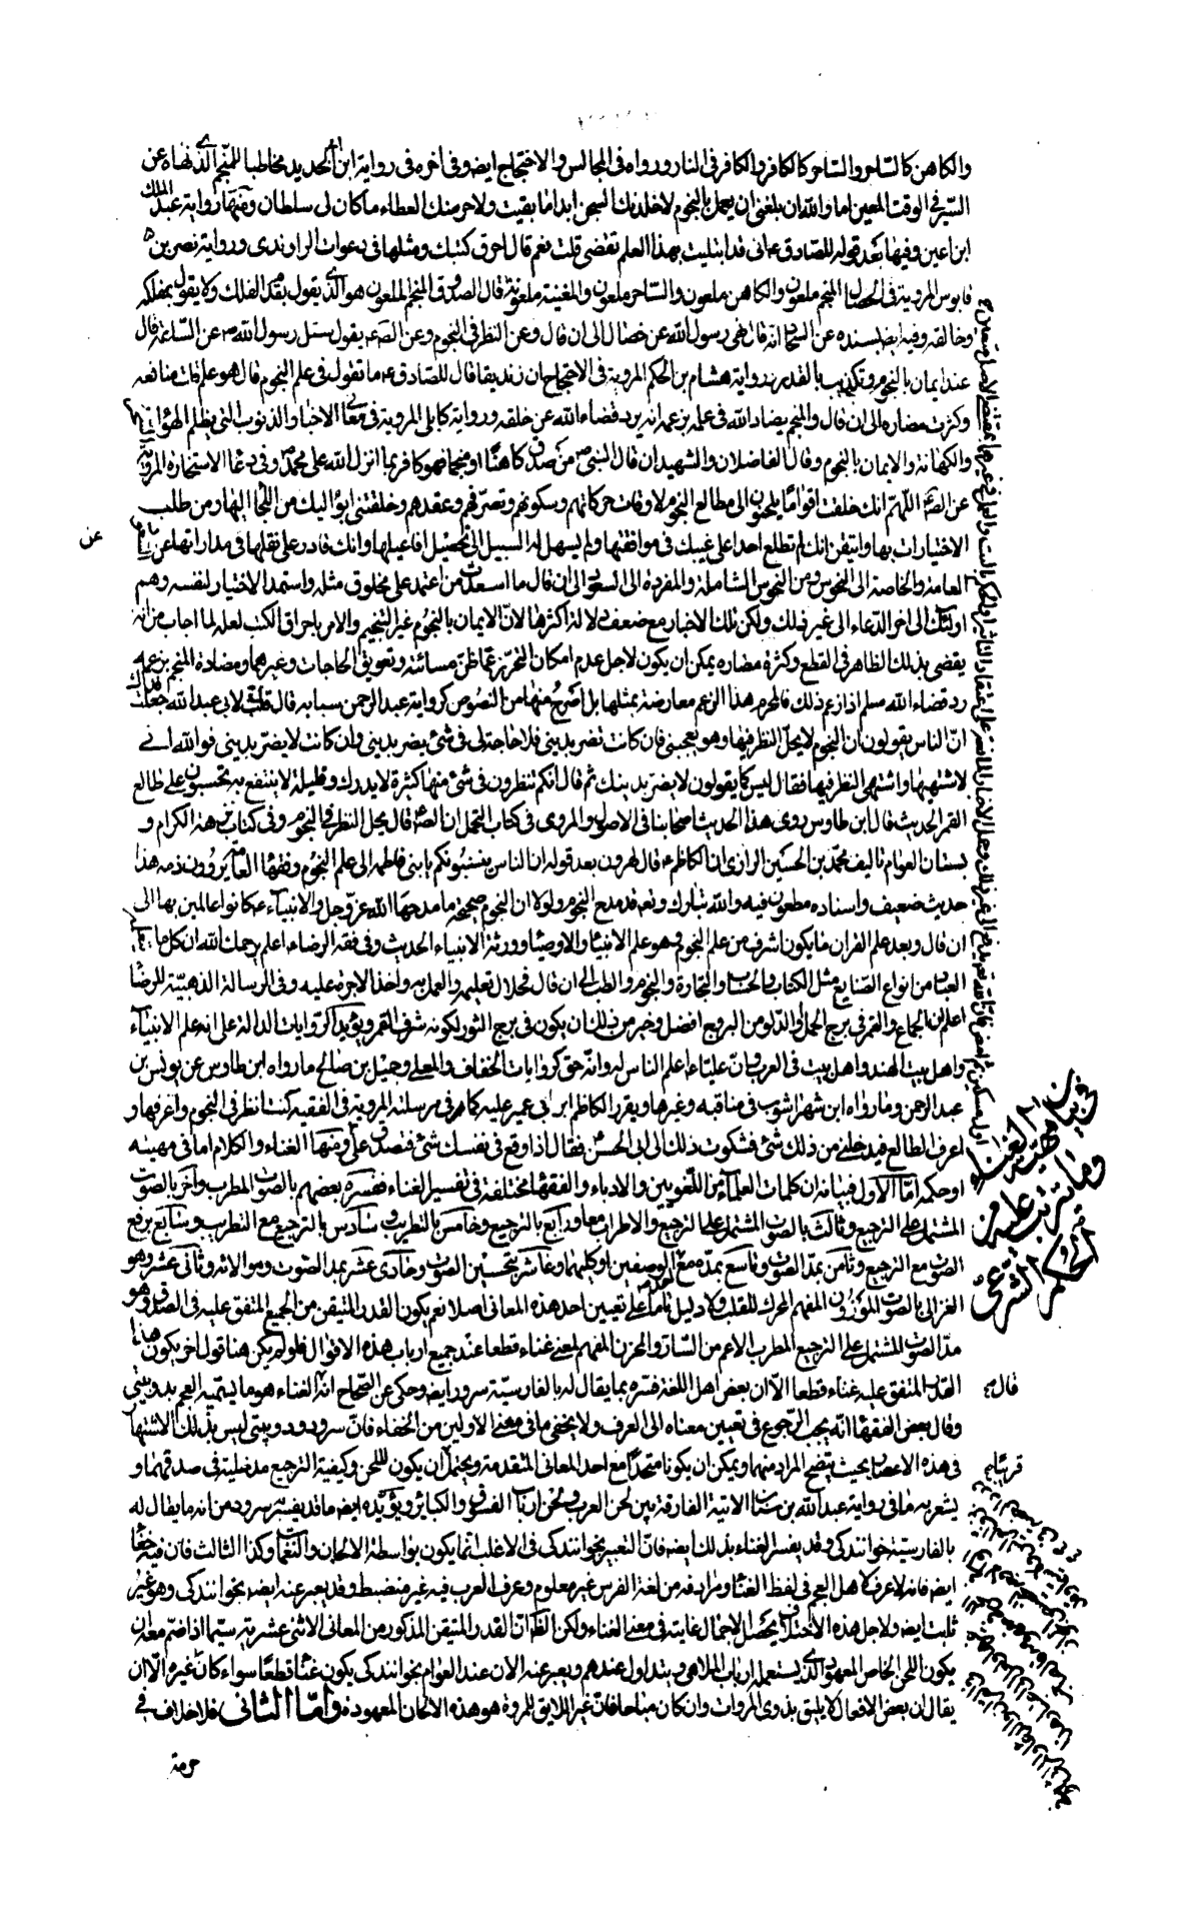 والكاهن كالساحر والساحر كالكافر والكافر في النار ورواه في المجالس والاحتجاج ايضا وفي اخره في رواية ابن ابي الحديد مخاطبا للمنجم الذي نهاه عن
السير في الوقت المعين اما والله ان بلغني ان يعمل بالنجوم لاخلدنك السجن ابدا ما بقيت ولاحرمنك العطاء ما كان لي سلطان ومنها رواية عبد الملك
ابن اعين وفيها بعد قوله للصادق ع اني قد ابتليت بهذا العلم تقضى قلت نعم قال احرق كتبك ومثلها في دعوات الراوندي ورواية نصر بن
قابوس المروية في الخصال المنجم ملعون والكاهن ملعون والساحر ملعون والمغنية ملعونة قال الصدوق المنجم الملعون هو الذي يقول بقدم الفلك ولا يقول بمفلكه
وخالقه وفيه ايضا بسنده عن انه قال نهى رسول الله عن خصال الى ان قال وعن النظر في النجوم وعن الصه ع يقول سئل رسول الله ص عن الساعة قال
عند ايمان بالنجوم وتكذيب بالقدر ورواية هشام بن الحكم المروية في الاحتجاج ان زنديقا قال للصادق ع ما تقول في علم النجوم قال هو علم قلت منافعه
وكثرت مضاره الى ان قال والمنجم يضاد الله في علمه بزعمه انه يرد قضاء الله عن خلقه ورواية كابلي المروية في معاني الاخبار والذنوب التي يظلم الهواء
والكهانة والايمان بالنجوم وقال الفاضلان والشهيدان قال النبي ص من صدق كاهنا او منجما فهو كافر بما انزل الله على محمد ص وفي دعاء الاستخارة المروية
عن الصه ع اللهم انك خلقت اقواما يلجئون الى مطالع النجوم لاوقات حركاتهم وسكونهم وتصرفهم وعقدهم وخلقتني ابرأ اليك من اللجأ اليها ومن طلب
الاختيارات بها واتيقن انك لم تطلع احدا على غيبك في مواقعها ولم تسهل له السبيل الى تحصيل افاعيلها وانك قادر على نقلها في مداراتها عن
العامة والخاصة الى النحوس ومن النحوس الشاملة والمفردة الى السعود الى ان قال ما اسعدت من اعتمد على مخلوق مثله واستمد الاختيار لنفسه وهم
اولئك الى اخر الدعاء الى غير ذلك ولكن تلك الاخبار مع ضعف دلالة اكثرها لان الايمان بالنجوم غير التنجيم والامر باحراق الكتب لعله لما اجاب من انه
يقضي بذلك الظاهر في القطع وكثرة مضاره يمكن ان يكون لاجل عدم امكان التحرز عما ظن مسائته وتعويق الحاجات وغيرهما ومضادة المنجم بزعمه
رد قضاء الله مسلم اذا زعم ذلك فالمحرم هذا الزعم معارضة بمثلها بل اصرح منها من النصوص كرواية عبد الرحمن بن سيابه قال قلت لابي عبد الله جعلت فداك
ان الناس يقولون ان النجوم لا يحل النظر فيها وهو يعجبني فان كانت تضر بديني فلا حاجة لي في شئ يضر بديني وان كانت لا يضر بديني فوالله اني
لاشتهيها واشتهي النظر فيها فقال ليس كما يقولون لا يضر بدينك ثم قال انكم تنظرون في شئ منها كثيره لا يدرك وقليله لا ينتفع به تحسبون على طالع
القمر الحديث قال ابن طاوس روى هذا الحديث اصحابنا في الاصول والمروي في كتاب التجمل ان الصه ع قال يحل النظر في النجوم وفي كتاب نزهة الكرام و
بستان العوام تاليف محمد بن الحسين الرازي ان الكاظم ع قال لهرون بعد قوله ان الناس ينسبونكم يا بني فاطمه الى علم النجوم وفقهاء العامة يروون ذمه هذا
حديث ضعيف واسناده مطعون فيه والله تبارك وتعه قد مدح النجوم ولولا ان النجوم صحيحة ما مدحها الله عز وجل والانبياء ع كانوا عالمين بها الى
ان قال وبعد علم القران ما يكون اشرف من علم النجوم وهو علم الانبياء والاوصياء وورثة الانبياء الحديث وفي فقه الرضا ع اعلم يرحمك الله ان كل ما
العباد من انواع الصنايع مثل الكتاب والحساب والتجارة والنجوم والطب الى ان قال فحلال تعليمه والعمل به واخذ الاجرة عليه وفي الرسالة الذهبية للرضا
اعلم ان الجماع والقمر في برج الحمل او الدلو من البروج افضل وخير من ذلك ان يكون في برج الثور لكونه شرف القمر ويؤيد الروايات الدالة على انه علم الانبياء
واهل بيت الهند واهل بيت في العرب وان عليا ع اعلم الناس به وانه حق كروايات الخفاف والمعلى وجميل بن صالح ما رواه ابن طاوس عن يونس بن
عبد الرحمن وما رواه ابن شهراشوب في مناقبه وغيرها وبتقرير الكاظم ابن ابي عمير عليه كما مر في مرسلته المروية في الفقيه كنت انظر في النجوم واعرفها و
اعرف الطالع فيدخلني من ذلك شئ فشكوت ذلك الى ابي الحسن ع فقال اذا وقع في نفسك شئ فتصدق على ومنها الغناء والكلام اما في مهيته
او حكمه اما الاول فبيانه ان كلمات العلماء من اللغويين والادباء والفقهاء مختلفة في تفسير الغناء ففسره بعضهم بالصوت المطرب واخر بالصوت
المشتمل على الترجيع وثالث بالصوت المشتمل على الترجيع والاطراب معا ورابع بالترجيع وخامس بالتطريب وسادس بالترجيع مع التطريب وسابع برفع
الصوت مع الترجيع وثامن بمد الصوت وتاسع بمده مع احد الوصفين او كليهما وعاشر بتحسين الصوت وحادي عشر بمد الصوت وموالاته وثاني عشر وهو
الغزالي بالصوت الموزون المفهم المحرك للقلب ولا دليل تاما على تعيين احد هذه المعاني اصلا نعم يكون القدر المتيقن من الجميع المتفق عليه في الصدق وهو
مد الصوت المشتمل على الترجيع المطرب الاعم من السار والمحزن المفهم لمعنى غناء قطعا عند جميع ارباب هذه الاقوال فلو لم يكن هنا قول اخر يكون هذا
القدر المتفق عليه غناء قطعا الا ان بعض اهل اللغة فسره بما يقال له بالفارسية سرود ايضا وحكي عن الصحاح انه الغناء هو ما يسميه العجم بدو بيتي
وقال بعض الفقهاء انه يجب الرجوع في تعيين معناه الى العرف ولا يخفى ما في معنى الاولين من الخفاء فان سرود ودو بيتي ليس بذلك الاشتهار
في هذه الاعصار بحيث يتضح المراد منهما ويمكن ان يكونا متحدا مع احد المعاني المتقدمة ويحتمل ان يكون للحن وكيفية الترجيع مدخلية في صدقهما و
يشعر به ما في رواية عبد الله بن سنان الاتية الفارقة بين لحن العرب ولحن ارباب الفسوق والكبائر ويؤيده ايضا ما قد يفسر سرود من انه ما يقال له
بالفارسية خوانندكي وقد يفسر الغناء بذلك ايضا فان التعبير بخوانندكي في الاغلب انما يكون بواسطة الالحان والنغمات وكذا الثالث فان فيه خفاء
ايضا فانه لا عرف لاهل العجم في لفظ الغناء ومرادفه من لغة الفرس غير معلوم وعرف العرب فيه غير منضبط وقد يعبر عنه ايضا بخوانندكي وهو غير
ثابت ايضا ولاجل هذه الاختلافات يحصل الاجمال غايته في معنى الغناء ولكن الظاهر ان القدر المتيقن المذكور من المعاني الاثنى عشرية سيما اذا ضم معه ان
يكون اللحن الخاص المعهود الذي يستعمله ارباب الملاهي ويتداول عندهم ويعبر عنه الان عند العوام بخوانندكي يكون غناء قطعا سواء كان غيره الا ان
يقال ان بعض الافعال لا يليق بذوي المروات وان كان مباحا فان غير اللايق للمروة هو هذه الالحان المعهودة واما الثاني فلا خلاف في
حرمة
في بيان مهية الغناء
وما يترتب عليه من
الحكم الشرعي
عن
قال